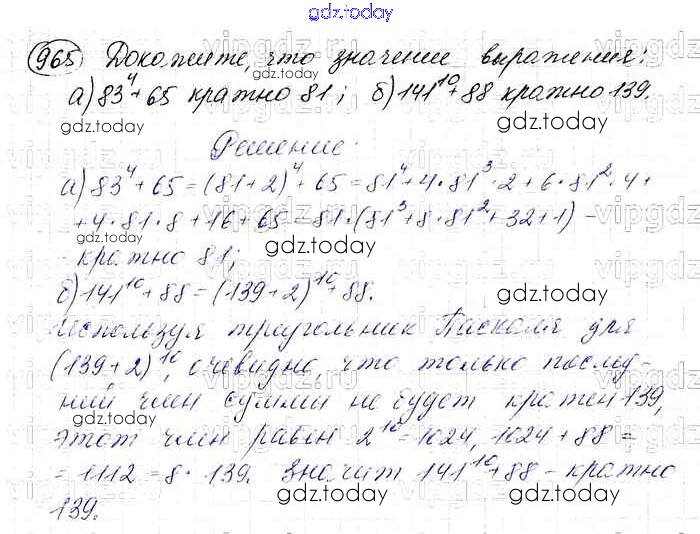 gdz.today
965 Докажите, что значение выражения:
а) 83⁴+65 кратно 81; б) 141¹⁰+88 кратно 139.
Решение:
а) 83⁴+65=(81+2)⁴+65=81⁴+4·81³·2+6·81²·4+
+4·81·8+16+65=81·(81³+8·81²+32+1) –
- кратно 81;
б) 141¹⁰+88=(139+2)¹⁰+88.
Используя треугольник Паскаля для
(139+2)¹⁰, очевидно, что только послед-
ний член суммы не будет кратен 139,
этот член равен 2¹⁰=1024, 1024+88=
=1112=8·139. Значит 141¹⁰+88 – кратно
139.